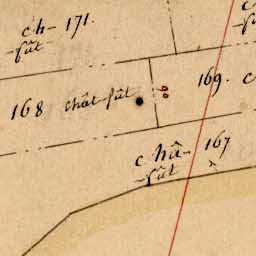 ch- 171.
fût
168 chât fût
169. c
ch û- 167
fût